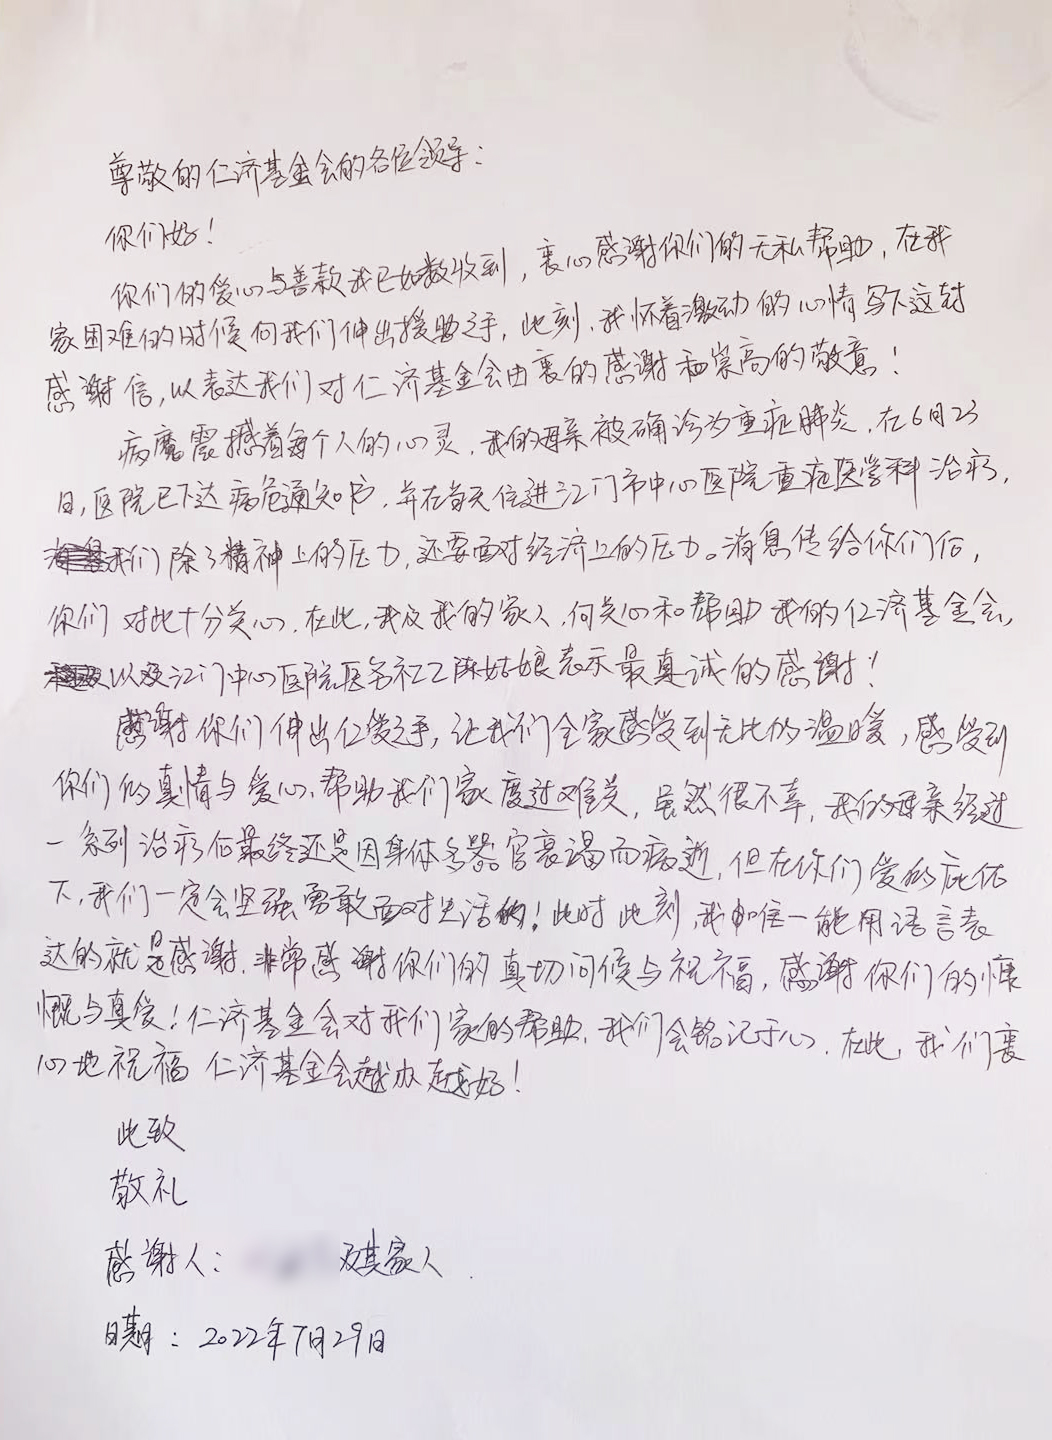 尊敬的仁济基金会的各位领导：
你们好！
你们的爱心与善款我已如数收到，衷心感谢你们的无私帮助，在我
家困难的时候向我们伸出援助之手，此刻，我怀着激动的心情写下这封
感谢信，以表达我们对仁济基金会由衷的感谢和崇高的敬意！
病魔震撼着每个人的心灵，我的母亲被确诊为重症肺炎，在6月23
日，医院已下达病危通知书，并在当天住进江门市中心医院重症医学科治疗，
我们除了精神上的压力，还要面对经济上的压力。消息传给你们后，
你们对此十分关心，在此，我及我的家人，向关心和帮助我的仁济基金会，
以及江门中心医院医务社工陈姑娘表示最真诚的感谢！
感谢你们伸出仁爱之手，让我们全家感受到无比的温暖，感受到
你们的真情与爱心，帮助我们家度过难关，虽然很不幸，我的母亲经过
一系列治疗后最终还是因身体多器官衰竭而病逝，但在你们爱的庇佑
下，我们一定会坚强勇敢面对生活的！此时此刻，我唯一能用语言表
达的就是感谢，非常感谢你们的真切问候与祝福，感谢你们的慷
慨与真爱！仁济基金会对我们家的帮助，我们会铭记于心，在此，我们衷
心地祝福仁济基金会越办越好！
此致
敬礼
感谢人：及其家人
日期：2022年7月29日